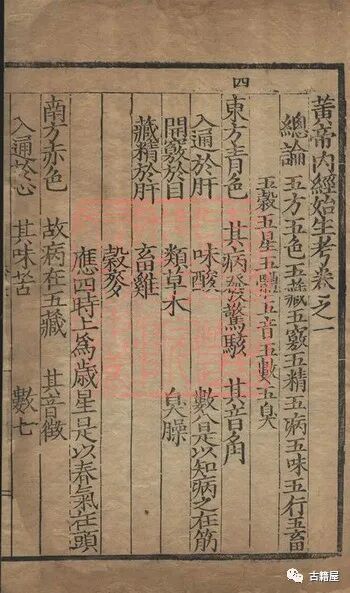 黃帝內經始生考卷之一
總論 五方五色五藏五竅五精五病五味五行五畜
五穀五星五體五音五數五臭
東方青色 其病發驚駭 其音角
入通於肝 味酸 數八是以知病之在筋
開竅於目 類草木 臭臊
藏精於肝 畜雞
穀麥
應四時上爲歲星是以春氣在頭
南方赤色 故病在五藏 其音徵
入通於心 其味苦 數七
四
古籍屋